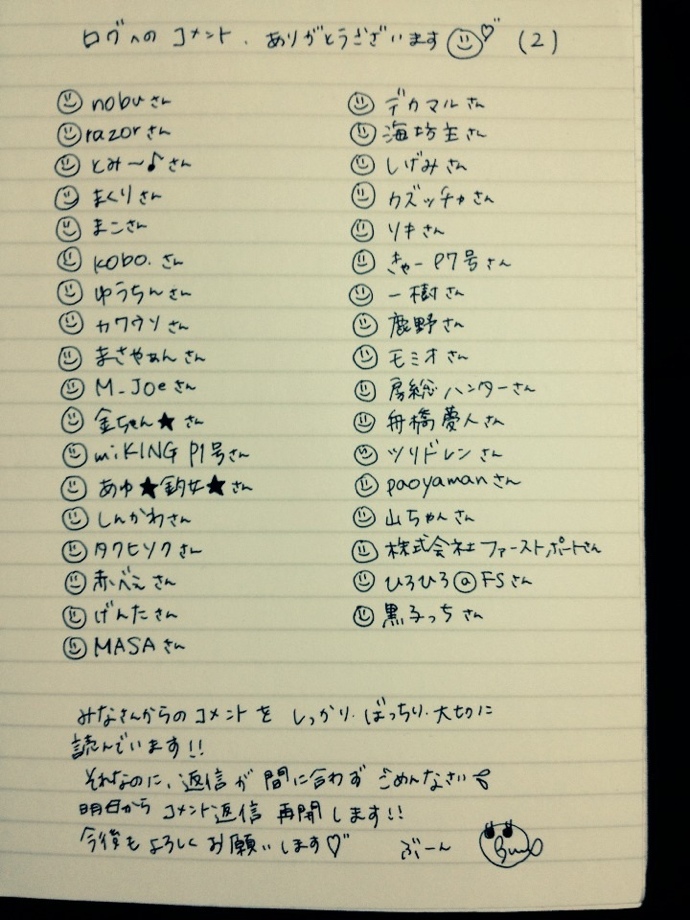 ログへのコメント、ありがとうございます (2)
nobuさん
razorさん
とみ〜♪さん
まくりさん
まこさん
kobo.さん
ゆうちんさん
カワウソさん
まさやぁんさん
M-Joeさん
金ちゃん★さん
miKING P1号さん
あゆ★釣女★さん
しんかわさん
タクヒソクさん
赤べぇさん
げんたさん
MASAさん
デカマルさん
海坊主さん
しげみさん
カズッチャさん
リキさん
きゃーP7号さん
一樹さん
鹿野さん
モミオさん
房総ハンターさん
舟橋夢人さん
ツリドレンさん
paoyamanさん
山ちゃんさん
株式会社ファーストポートさん
ひろひろ@FSさん
黒るっちさん
みなさんからのコメントを しっかり・ばっちり・大切に
読んでいます!!
それなのに、返信が間に合わず ごめんなさい
明日から コメント返信 再開します!!
今後もよろしくお願いします♡ ぶーん